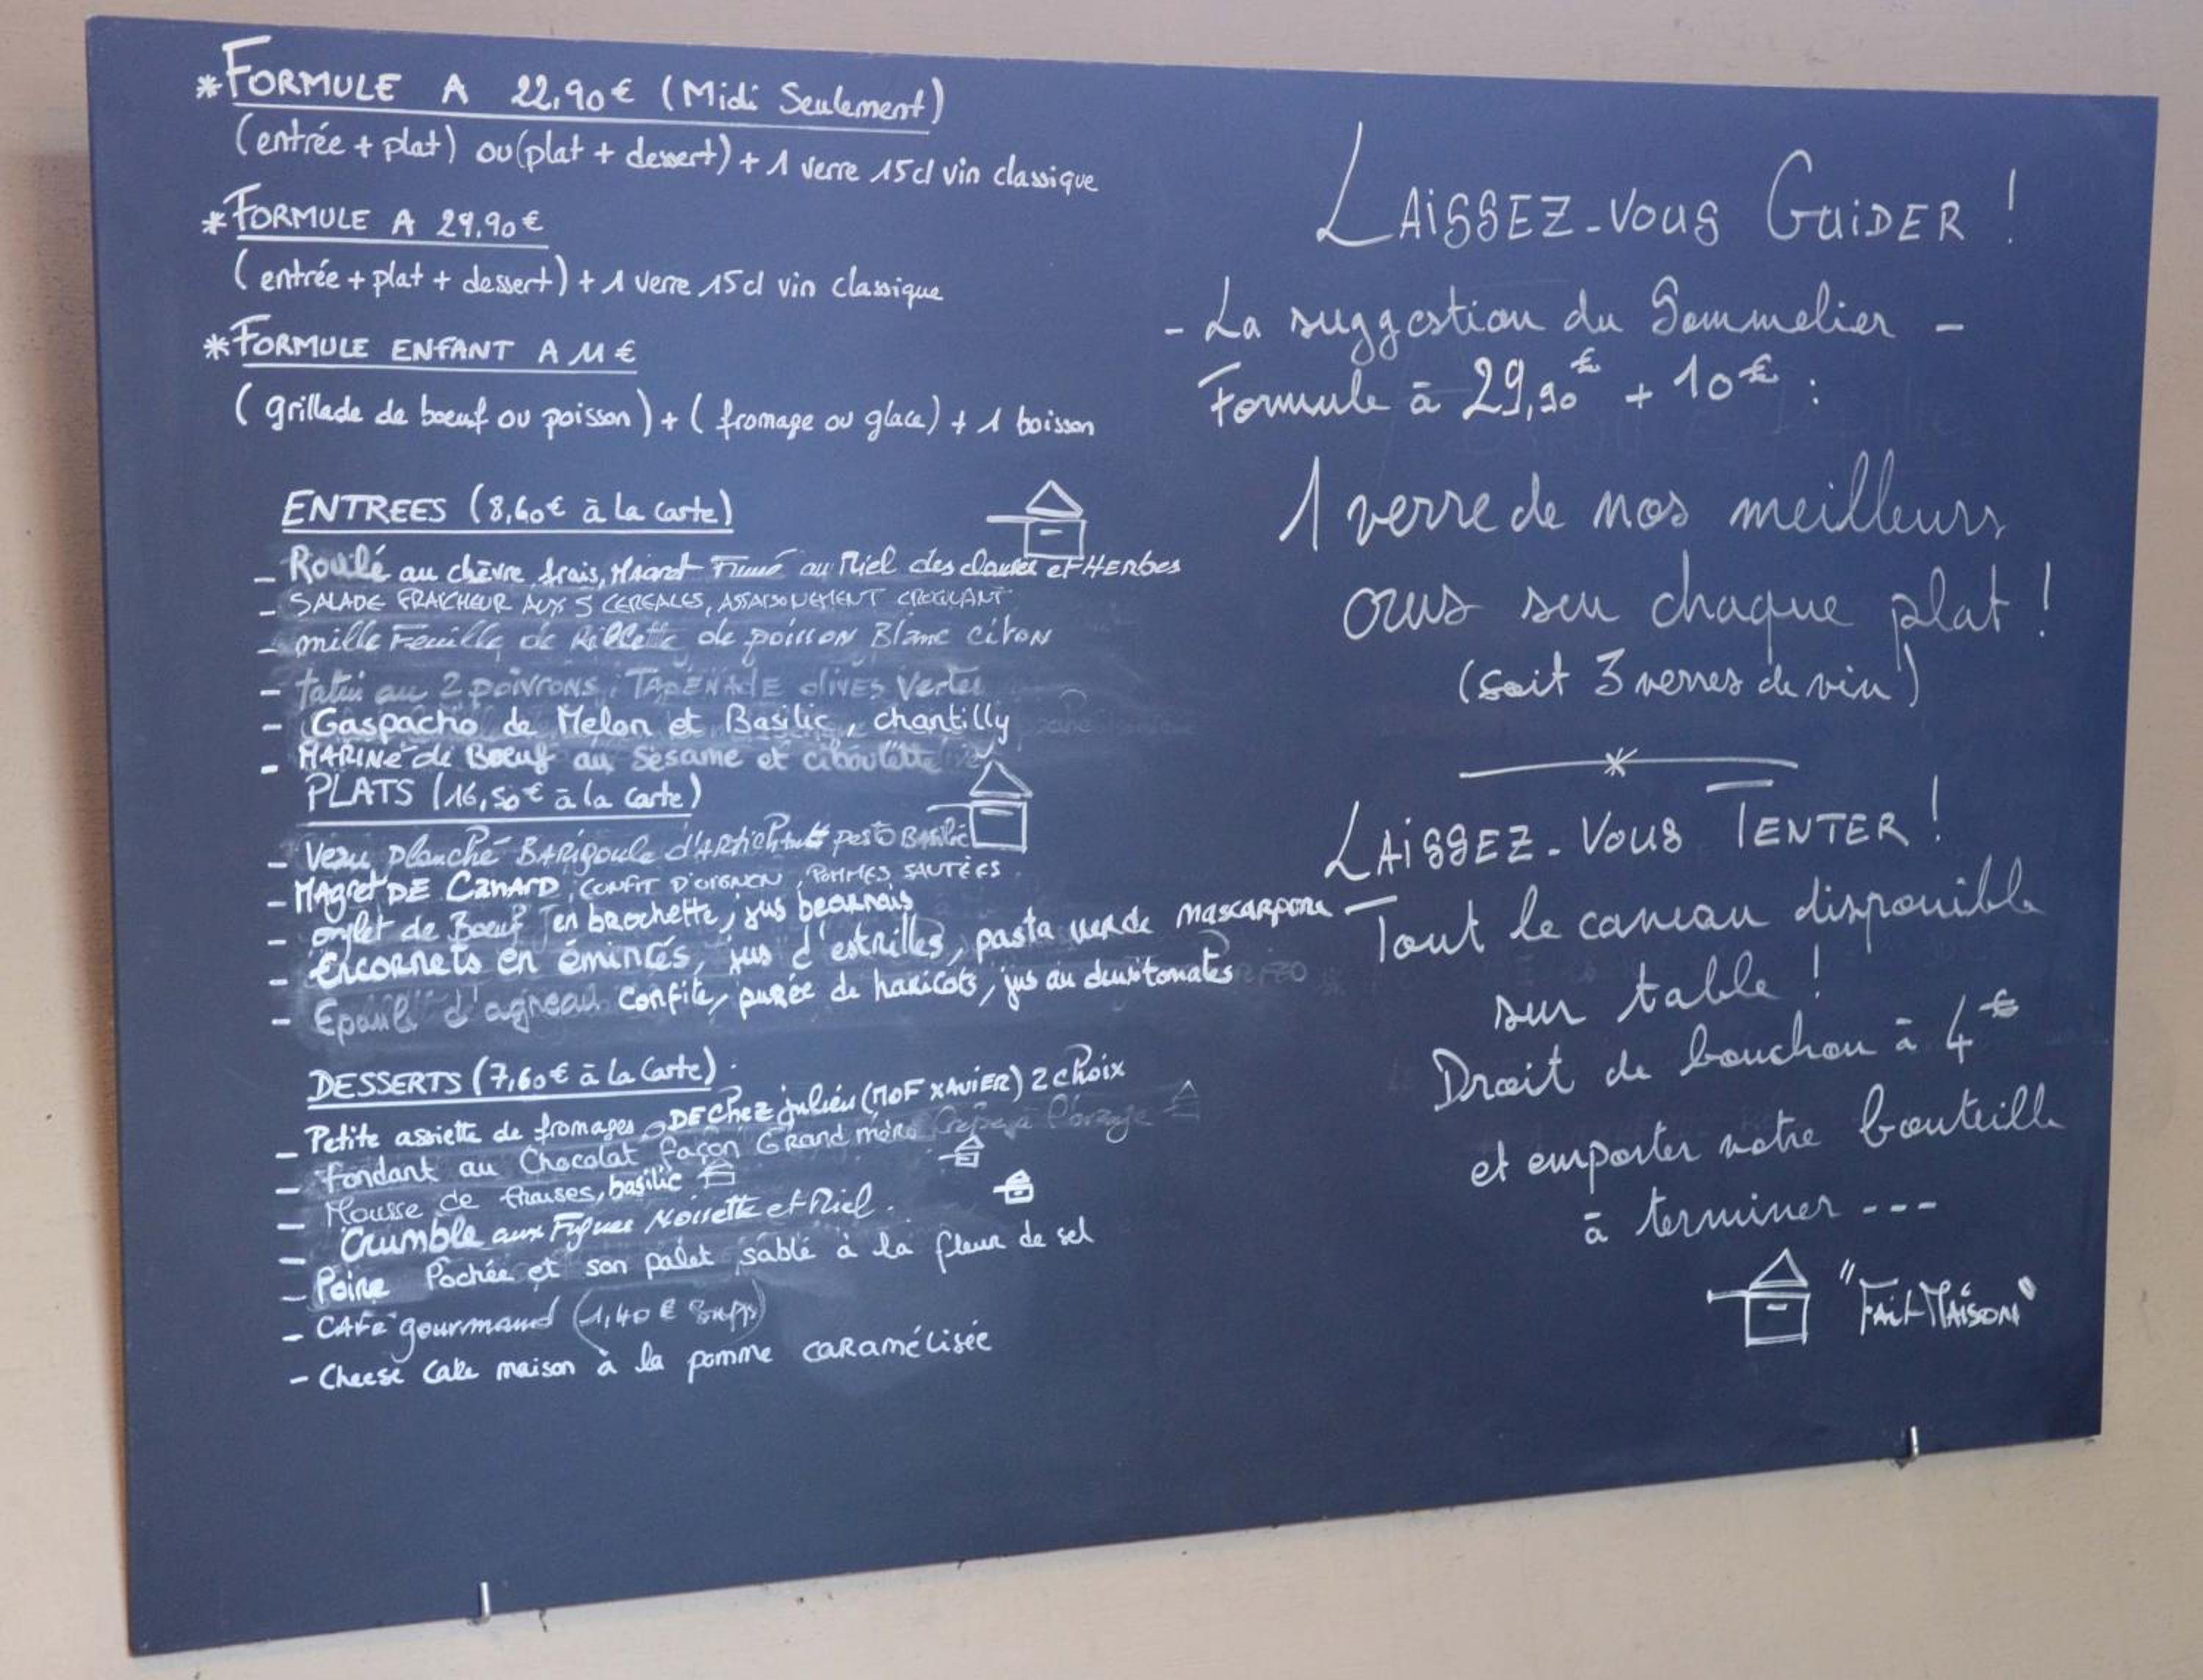 *FORMULE A 22,90€ (Midi Seulement)
(entrée + plat) ou (plat + dessert) + 1 verre 15cl vin classique
*FORMULE A 29,90€
(entrée + plat + dessert) + 1 verre 15cl vin classique
*FORMULE ENFANT A 11€
(grillade de boeuf ou poisson) + (fromage ou glace) + 1 boisson
ENTREES (8,60€ à la carte)
- Roulé au chèvre frais, Magret Fumé au Miel des et HERbes
- SALADE FRAICHEUR AUX 5 CEREALES, ASSAISONEMENT CROQUANT
- mille Feuille de Rillette de poisson Blanc citron
- tatin au 2 poivrons, TAPENADE olives Vertes
- Gaspacho de Melon et Basilic, chantilly
- MARINé de Boeuf au Sésame et ciboulette
PLATS (16,50€ à la carte)
- Veau planché BARigoule d'ARtichaut pesto Basilic
- MAgret DE CANARD, CONFIT D'OIGNON, POMMES SAUTÉES
- onglet de Boeuf en brochette, jus béarnais
- Encornets en émincés, jus d'estrilles, pasta verde mascarpone
- Epaule d'agneau confite, purée de haricots, jus au deux tomates
DESSERTS (7,60€ à la Carte).
- Petite assiette de fromages DE Chez julien (MOF XAVIER) 2 choix
- Fondant au Chocolat façon Grand mère Crêpe à l'orange
- Mousse de fraises, basilic
- Crumble aux Figues Noisette et Miel.
- Poire Pochée et son palet sablé à la fleur de sel
- CAFé gourmand (1,40€ Supp)
- Cheese Cake maison à la pomme caramélisée
LAISSEZ-VOUS GUIDER !
- La suggestion du Sommelier -
Formule à 29,90€ + 10€ :
1 verre de nos meilleurs
crus sur chaque plat !
(soit 3 verres de vin)
LAISSEZ-VOUS TENTER !
Tout le caveau disponible
sur table !
Droit de bouchon à 4€
et emporter votre bouteille
à terminer ---
"FAit-MAiSON"